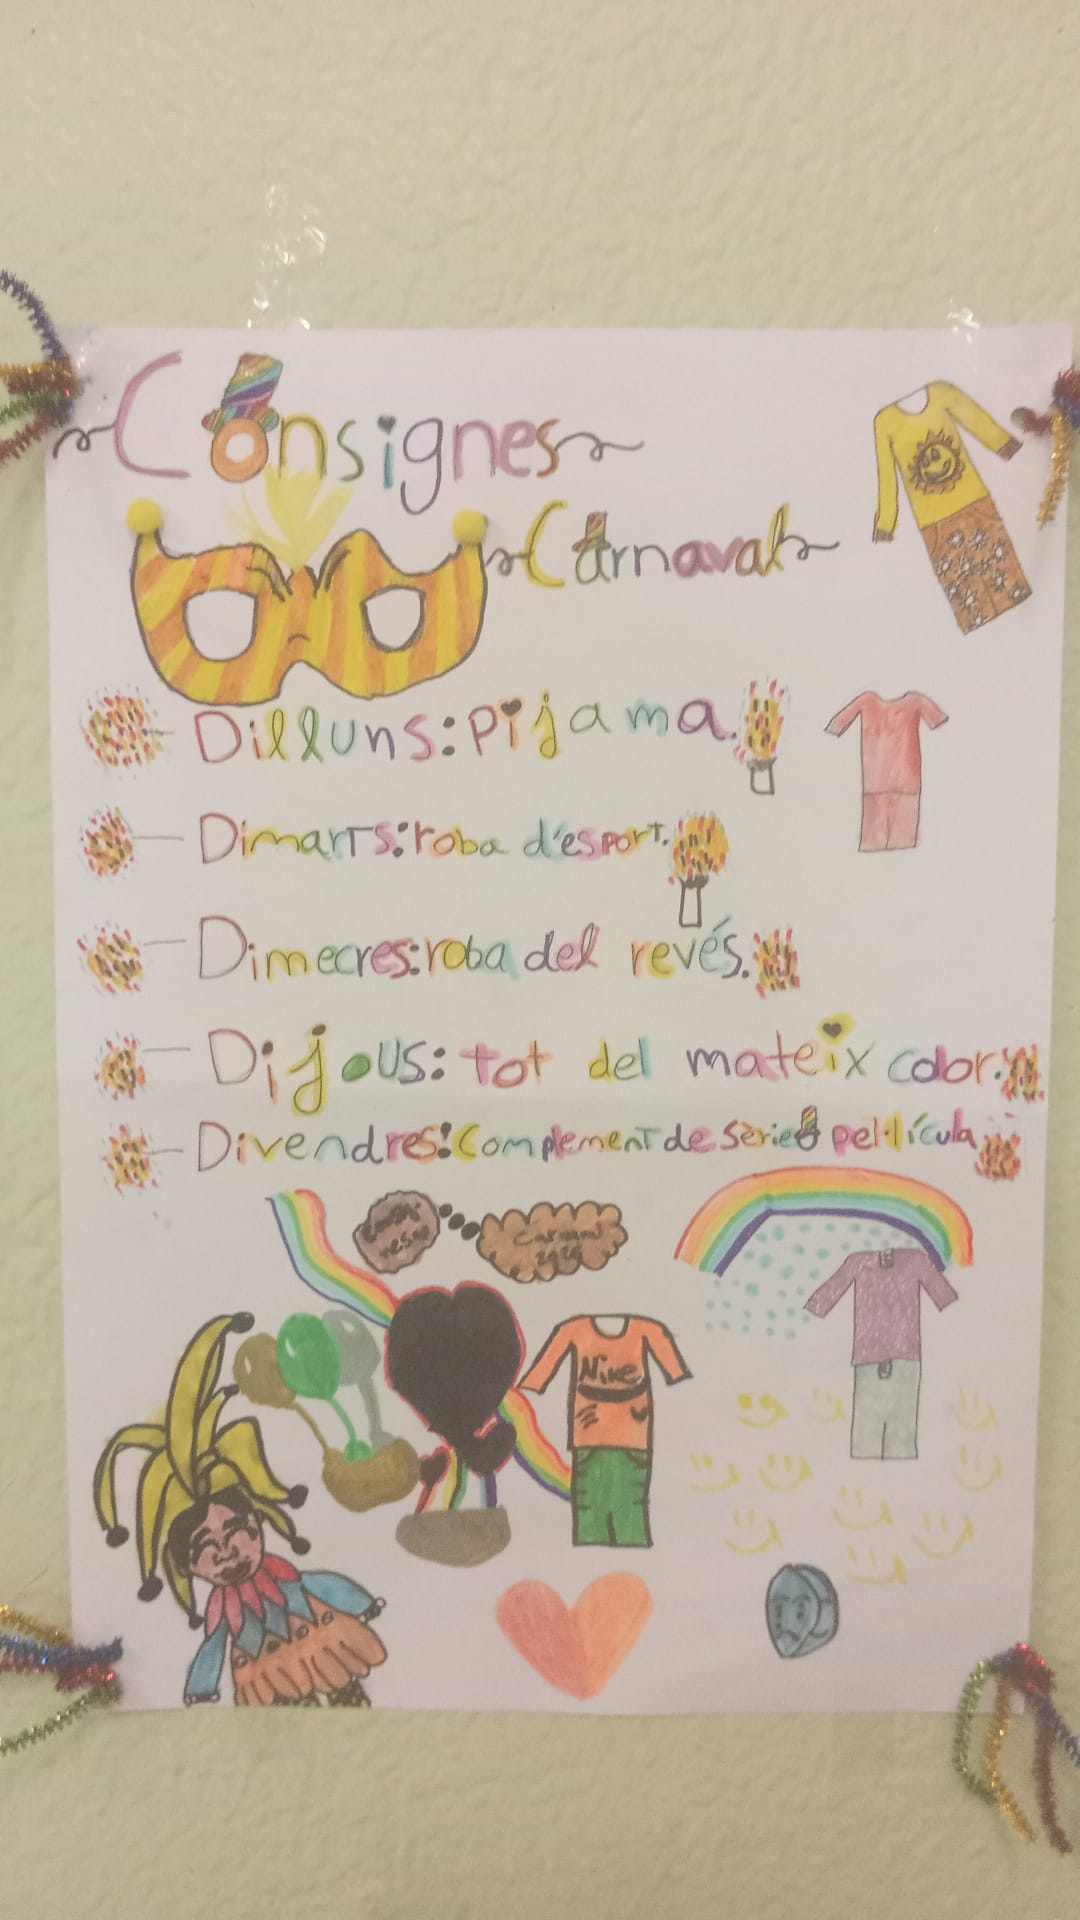 Consignes
Carnaval
Dilluns: pijama.
Dimarts: roba d'esport.
Dimecres: roba del revés.
Dijous: tot del mateix color.
Divendres: Complement de sèrie o pel·lícula
Carnaval
Nike